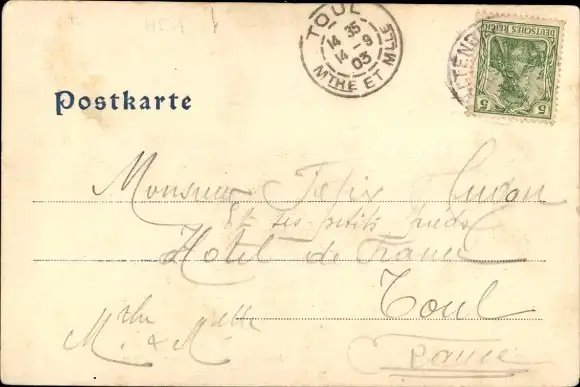 TOUL
14 35
14 -9
03
MTHE ET MLLE
DEUTSCHES REICH
5 5
Postkarte
Monsieur Felix
Et ses petits pieds
Hôtel de France
Toul
Mthe & Mlle
France